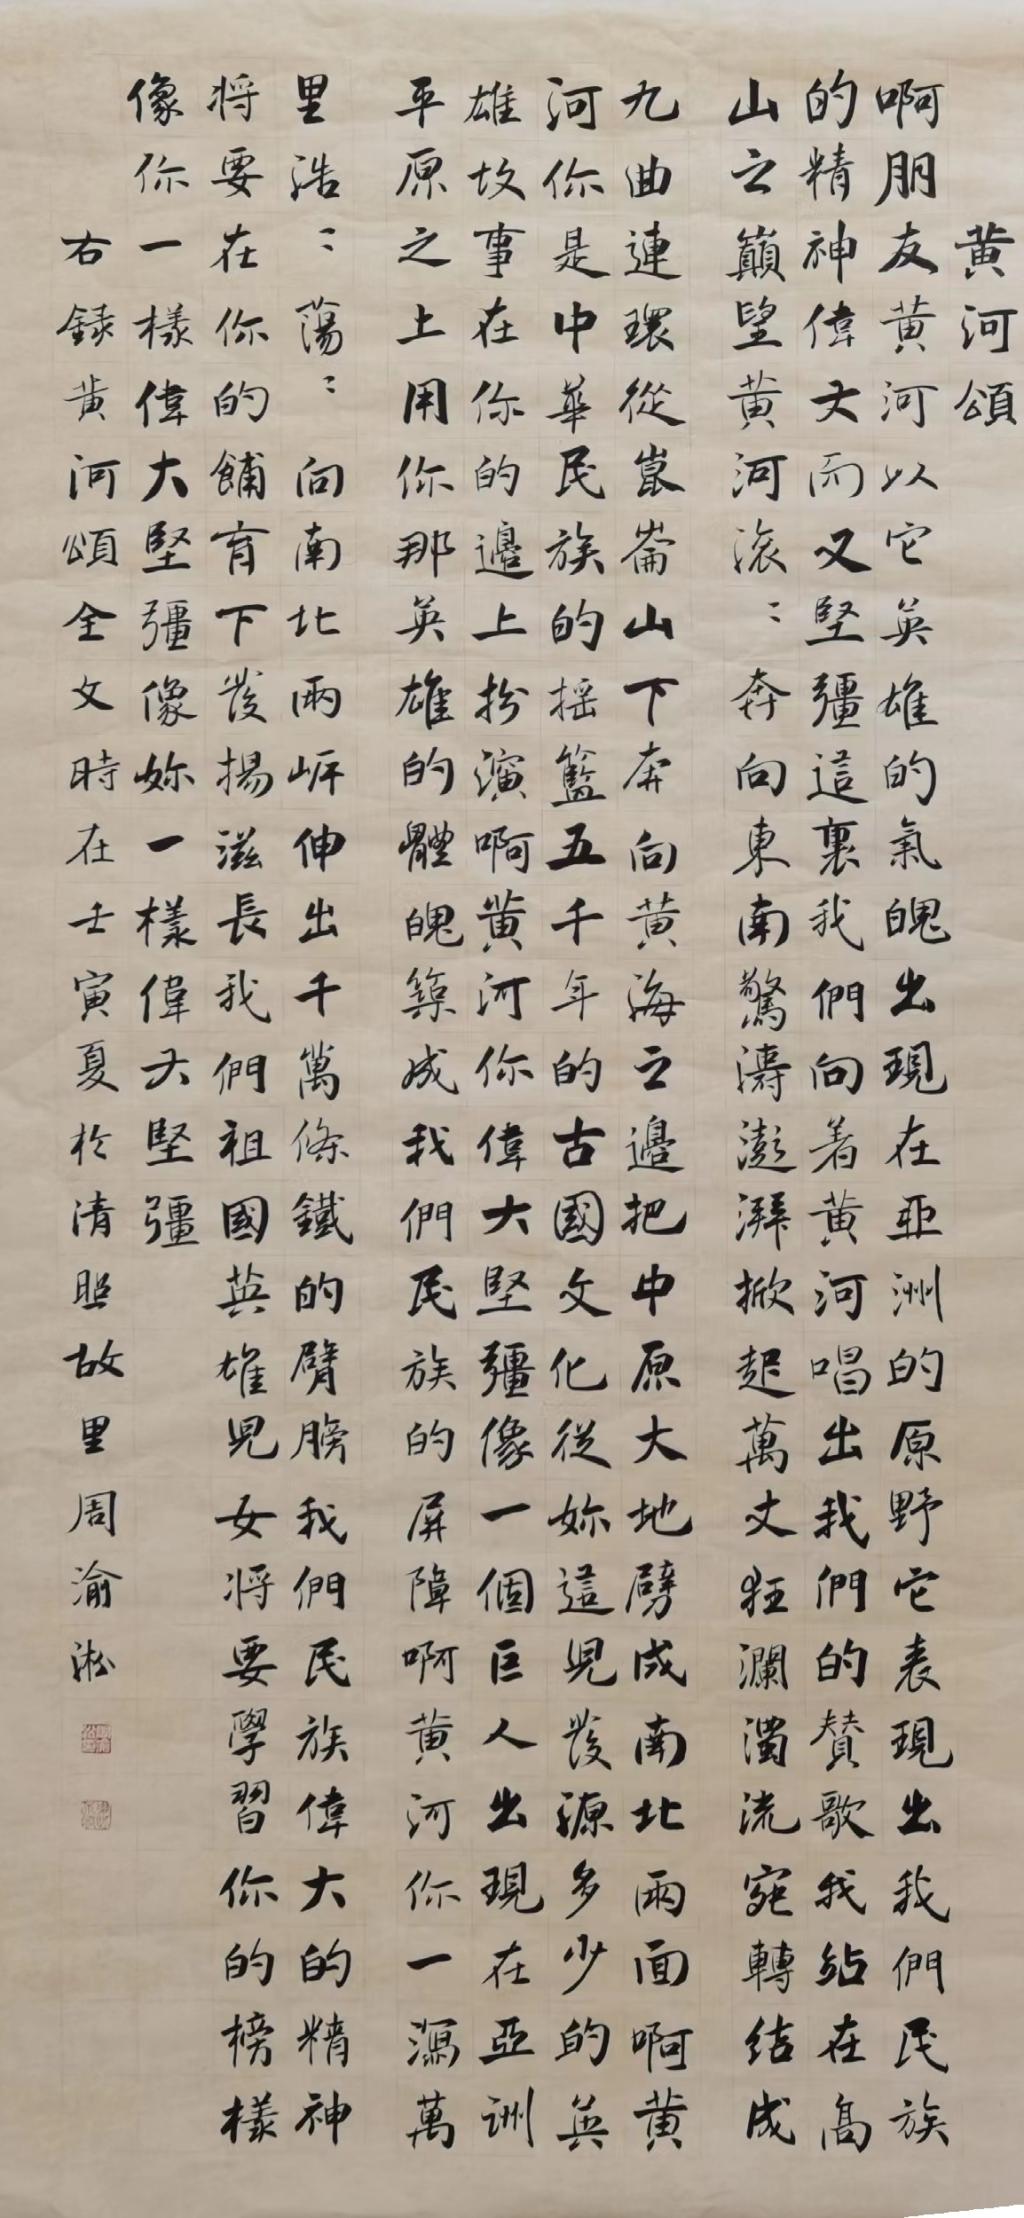 黄河頌
啊朋友黄河以它英雄的氣魄出現在亞洲的原野它表現出我們民族
的精神偉大而又堅彊這裏我們向着黄河唱出我們的賛歌我站在高
山之巔望黄河滚〻奔向東南驚濤澎湃掀起萬丈狂瀾濁流宛轉结成
九曲連環從崑崙山下奔向黄海之邊把中原大地劈成南北兩面啊黄
河你是中華民族的摇籃五千年的古國文化從妳這兒發源多少的英
雄故事在你的邊上扮演啊黄河你偉大堅彊像一個巨人出現在亞洲
平原之上用你那英雄的體魄築成我們民族的屏障啊黄河你一瀉萬
里浩〻蕩〻向南北兩岸伸出千萬條鐵的臂膀我們民族偉大的精神
将要在你的餔育下發揚滋長我們祖國英雄兒女将要學習你的榜樣
像你一樣偉大堅彊像妳一樣偉大堅彊
右録黄河頌全文時在壬寅夏於清照故里周渝淞